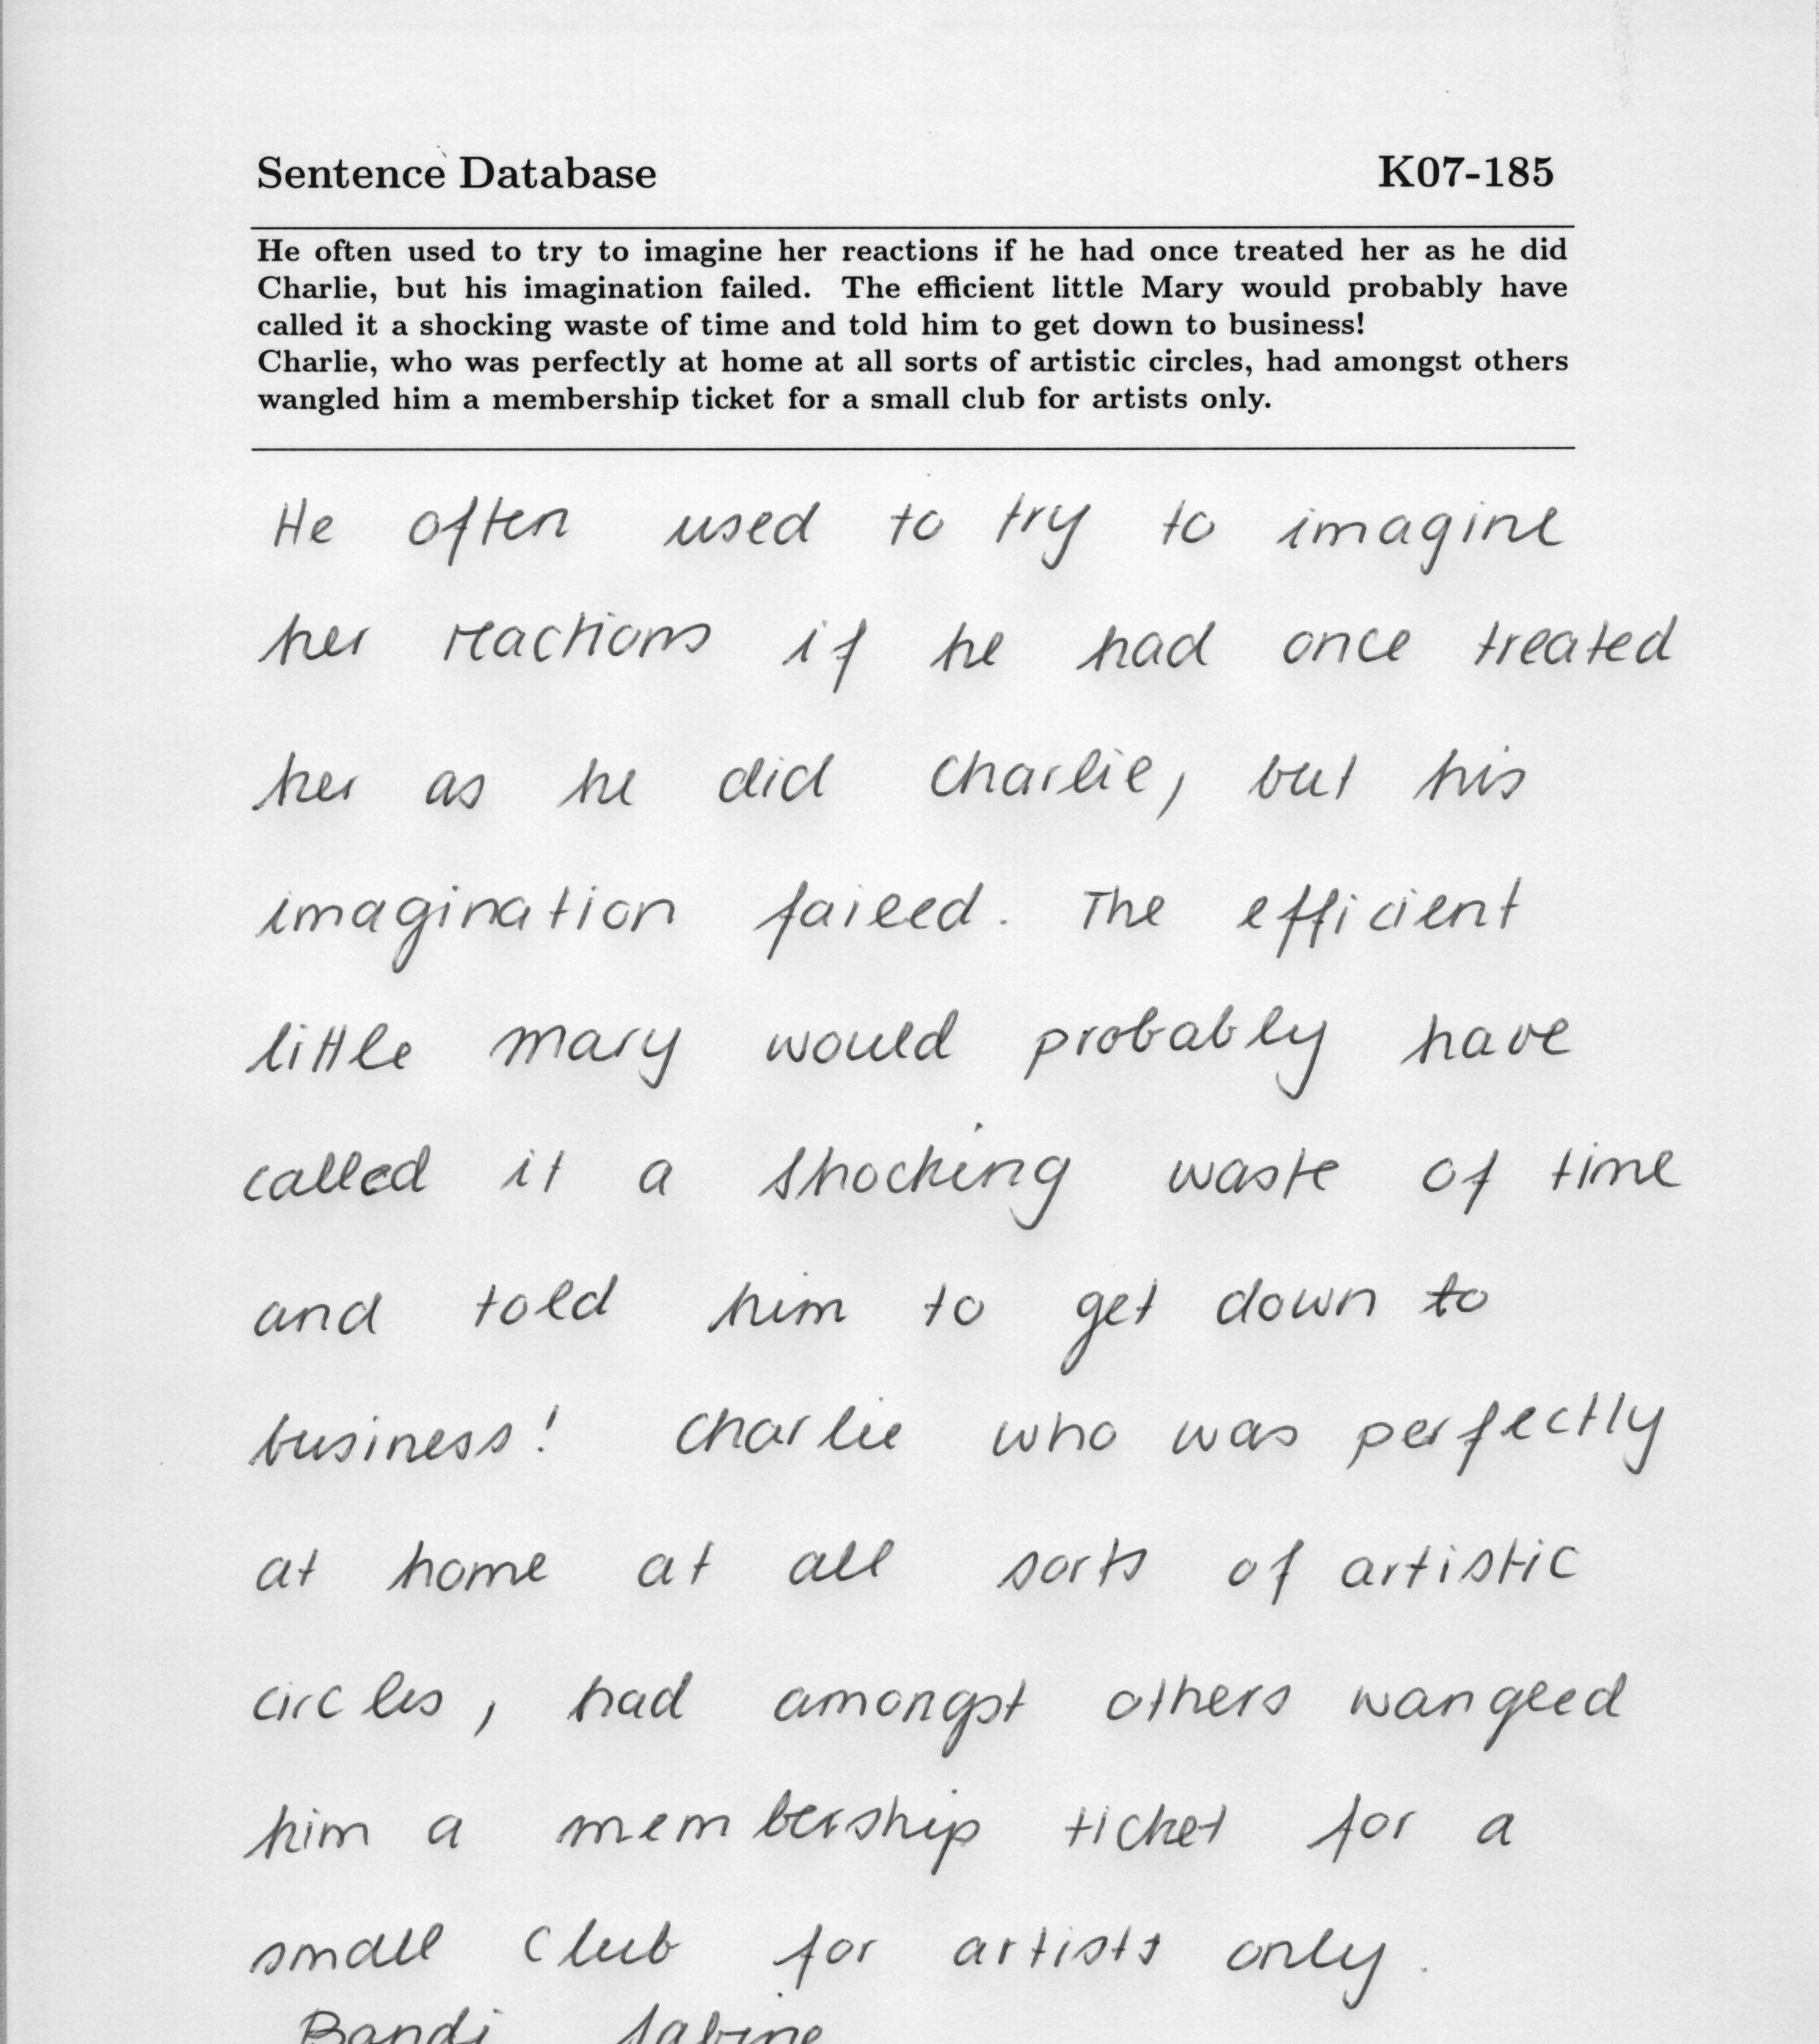 Sentence Database K07-185
He often used to try to imagine her reactions if he had once treated her as he did
Charlie, but his imagination failed. The efficient little Mary would probably have
called it a shocking waste of time and told him to get down to business!
Charlie, who was perfectly at home at all sorts of artistic circles, had amongst others
wangled him a membership ticket for a small club for artists only.
He often used to try to imagine
her reactions if he had once treated
her as he did Charlie, but his
imagination failed. The efficient
little Mary would probably have
called it a shocking waste of time
and told him to get down to
business! Charlie who was perfectly
at home at all sorts of artistic
circles, had amongst others wangled
him a membership ticket for a
small club for artists only.
Bandi Sabine